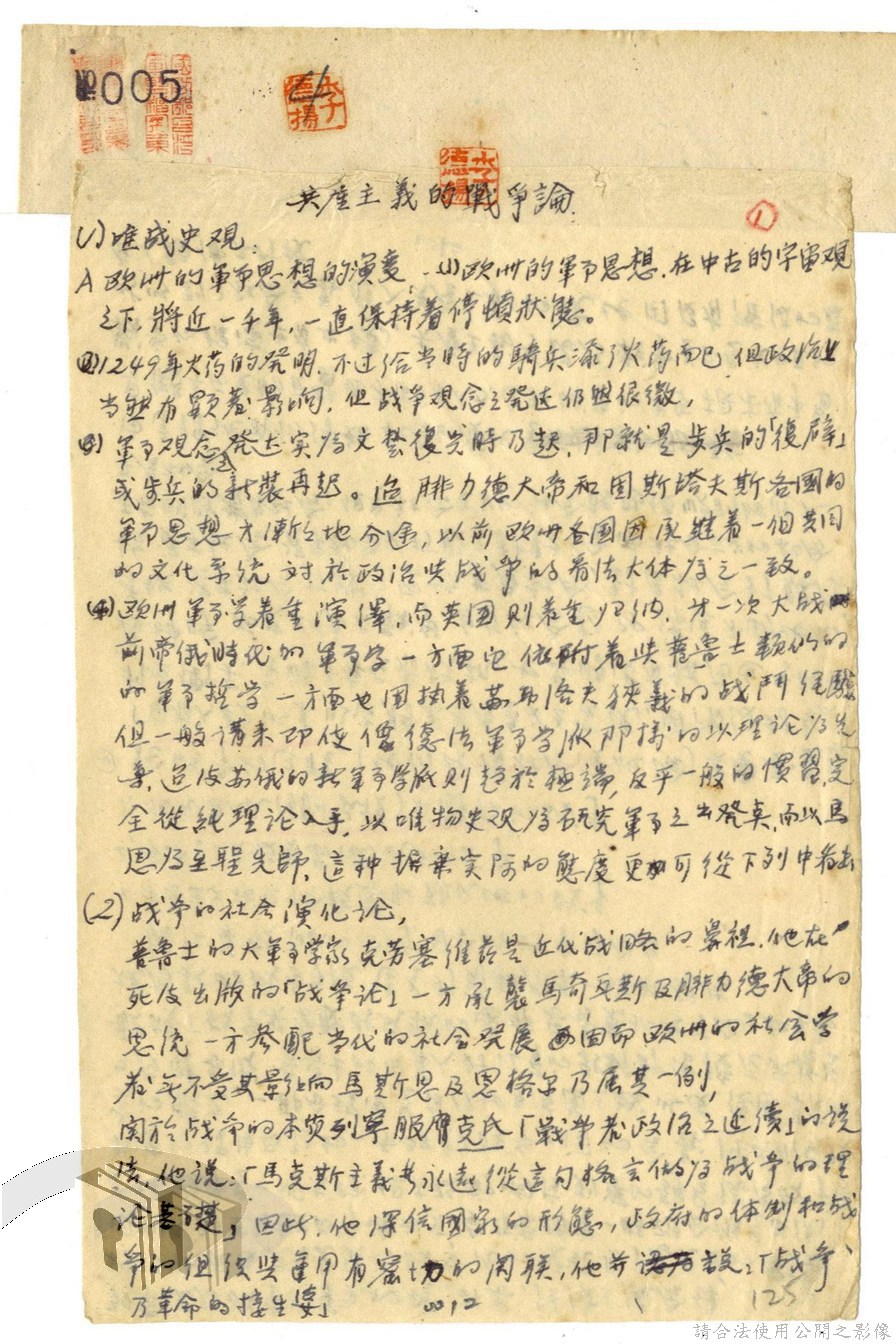 №005
李子
德揚
李子
德揚
共產主義的戰爭論
①
(1)唯战史观:
A 欧洲的軍事思想的演变,(1)欧洲的軍事思想,在中古的宇宙观
之下,將近一千年,一直保持着停頓狀態。
(2)1249年火药的発明,不过给当時的騎兵添了火药而已,但政治上
当然有顕著影响,但战争观念之発达仍然很微,
(3)軍事观念発达实为文藝復兴時乃起,那就是步兵的「復辟」
或步兵的新裝再起。迨腓力德大帝和固斯塔夫斯各國的
軍事思想才漸漸地分途,以前欧洲各国因承継着一個共同
的文化系統对於政治與战争的看法大体为之一致。
(4)欧洲軍事学着重演繹,而英国則着重归纳,才一次大战
前帝俄時代的軍事学一方面也依附着與普魯士類似的
的軍事哲学一方面也固執着苏沃洛夫狹義的战鬥经驗
但一般講来即使像德法軍事学派那樣的以理论为先
導,迨後苏俄的新軍事学派則趋於極端,反乎一般的慣習,完
全從純理论入手,以唯物史观为研究軍事之出発点,而以馬
恩为至聖先師,这种摒棄实际的態度更可從下列中看出
(2)战争的社会演化论,
普魯士的大軍事学家克劳塞維茨是近代战略的鼻祖,他在
死後出版的「战争论」一方承襲馬奇亚斯及腓力德大帝的
思統一方参配当代的社会発展,因而欧洲的社会学
者無不受其影响馬斯恩及恩格尔乃屬其一例,
関於战争的本质列寧服膺克氏「戰争者政治之延續」的说
法,他说:「馬克斯主義者永遠從这句格言做为战争的理
论基礎」因此,他深信國家的形態,政府的体制和战
争的组织與運用有密切的関联,他并说:「战争
乃革命的接生婆」
0012
125
請合法使用公開之影像